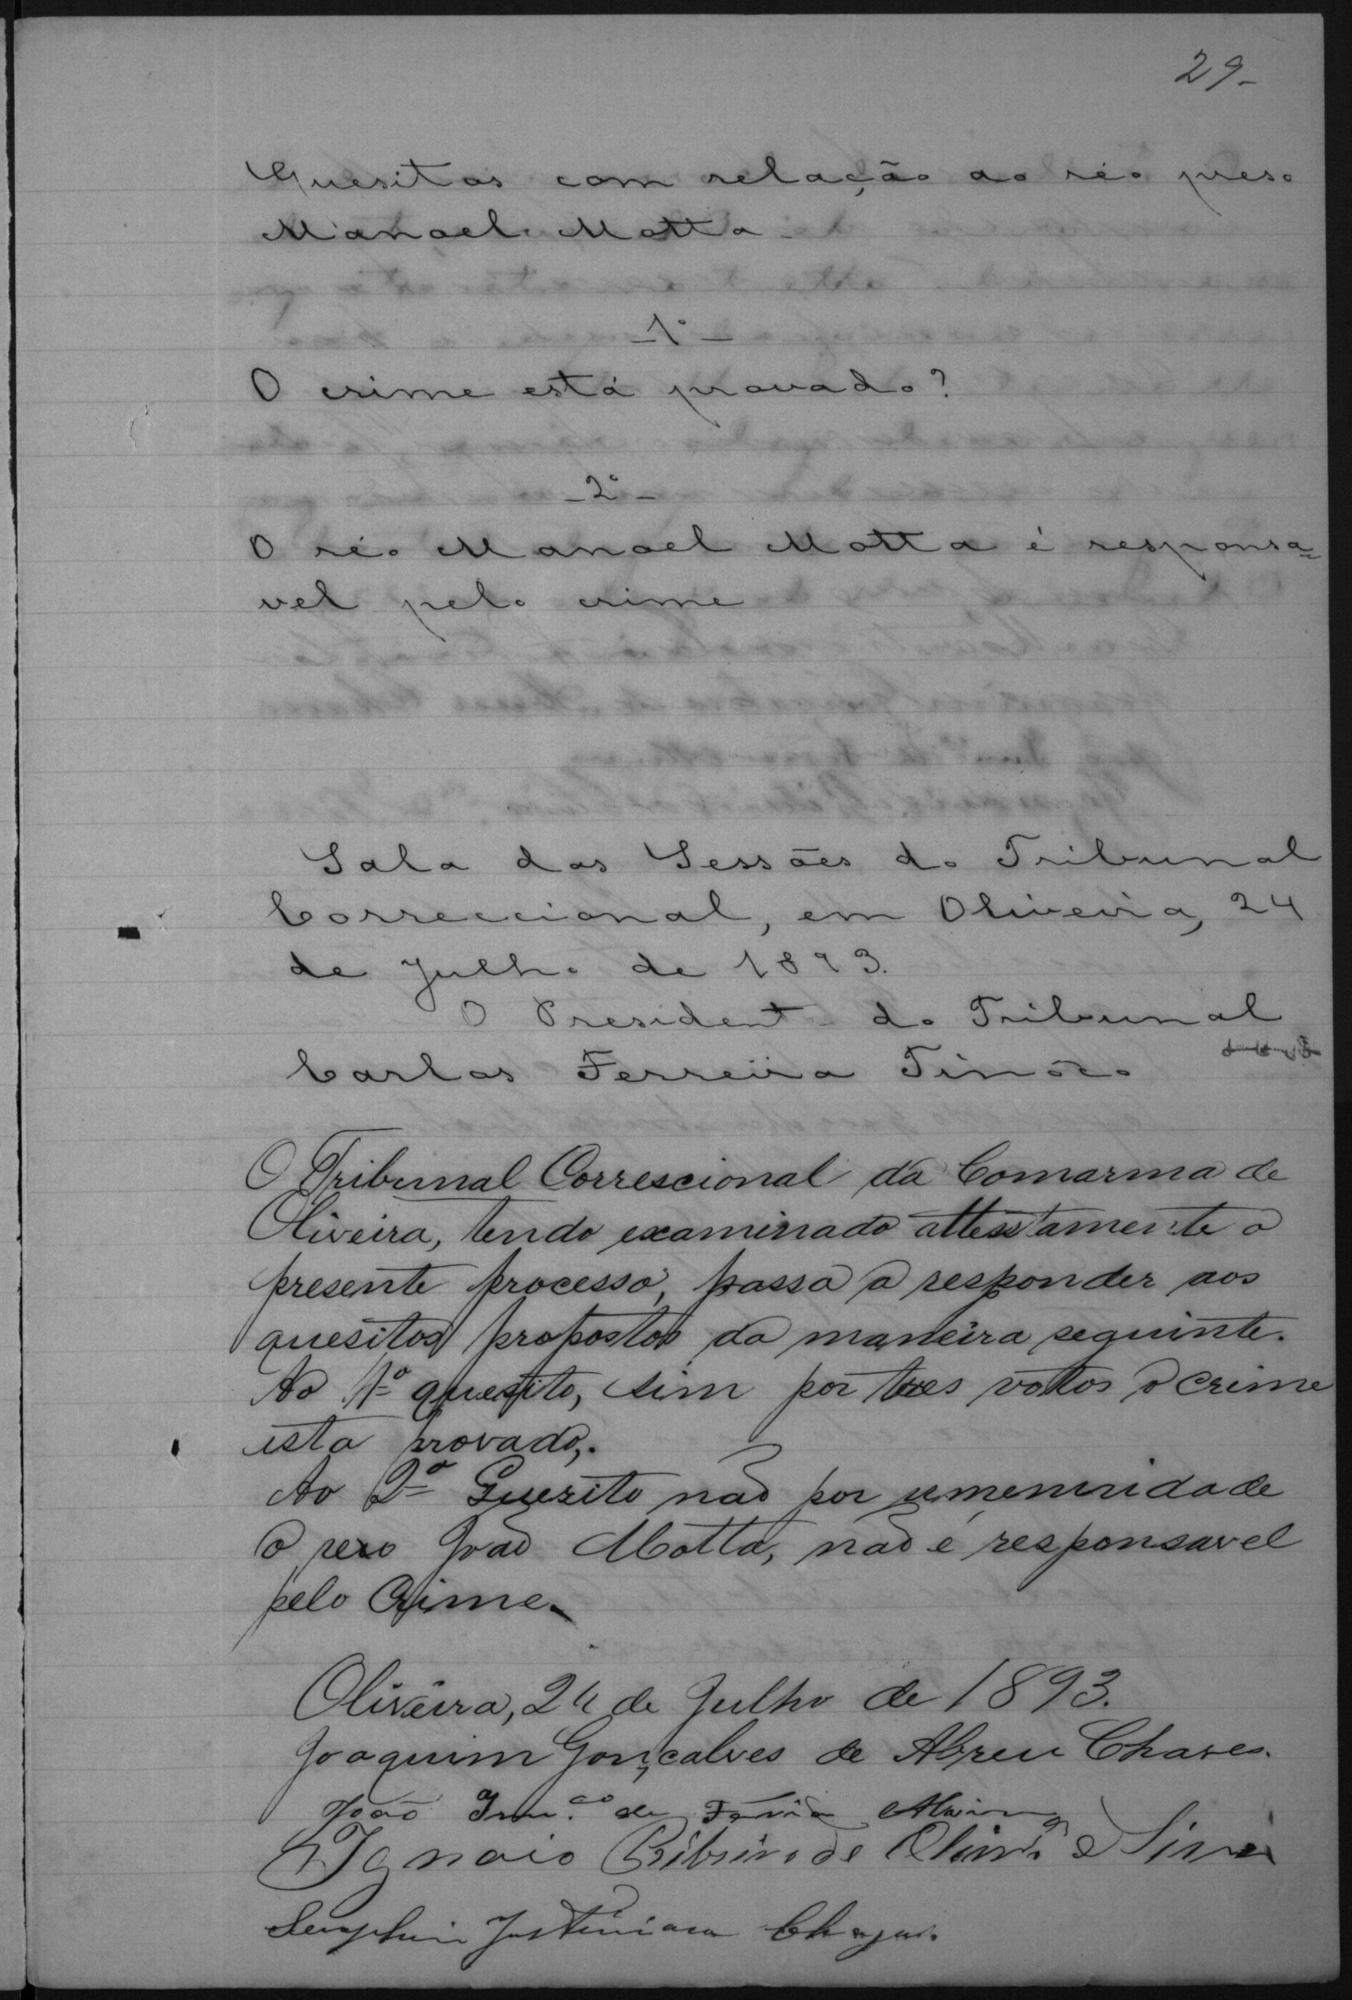 29-
Quesitos com relação ao réo preso
Manoel Motta
-1º-
O crime está provado?
-2º-
O réo Manoel Motta é responsa=
vel pelo crime
Sala das Sessões do Tribunal
Correccional, em Oliveira, 24
de Julho de 1893.
O Presidente do Tribunal
Carlos Ferreira Tinôco
O Tribunal Correscional da Comarma de
Oliveira, tendo examinado attestamente o
presente processo, passa a responder aos
quesitos propostos da maneira seguinte.
Ao 1º quesito, sim por tres votos o crime
esta provado,.
Ao 2º Quezito não por umenuridade
o reo João Motta, não é responsavel
pelo Crime.
Oliveira, 24 de Julho de 1893.
Joaquim Gonçalves de Abreu Chaves.
João de
Ignacio Ribeiro de Olivrª e Silva
Seraphim Justiniano Chagas.